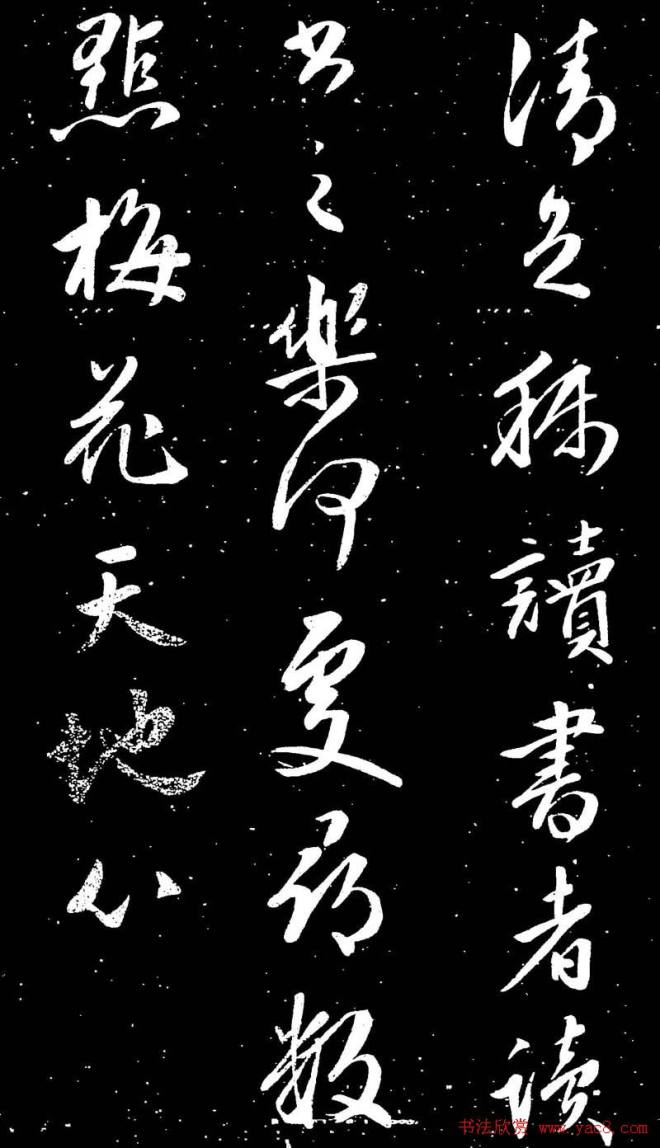 清足称讀書者读
书之樂何處尋数
點梅花天地心
书法欣赏 www.yac8.com